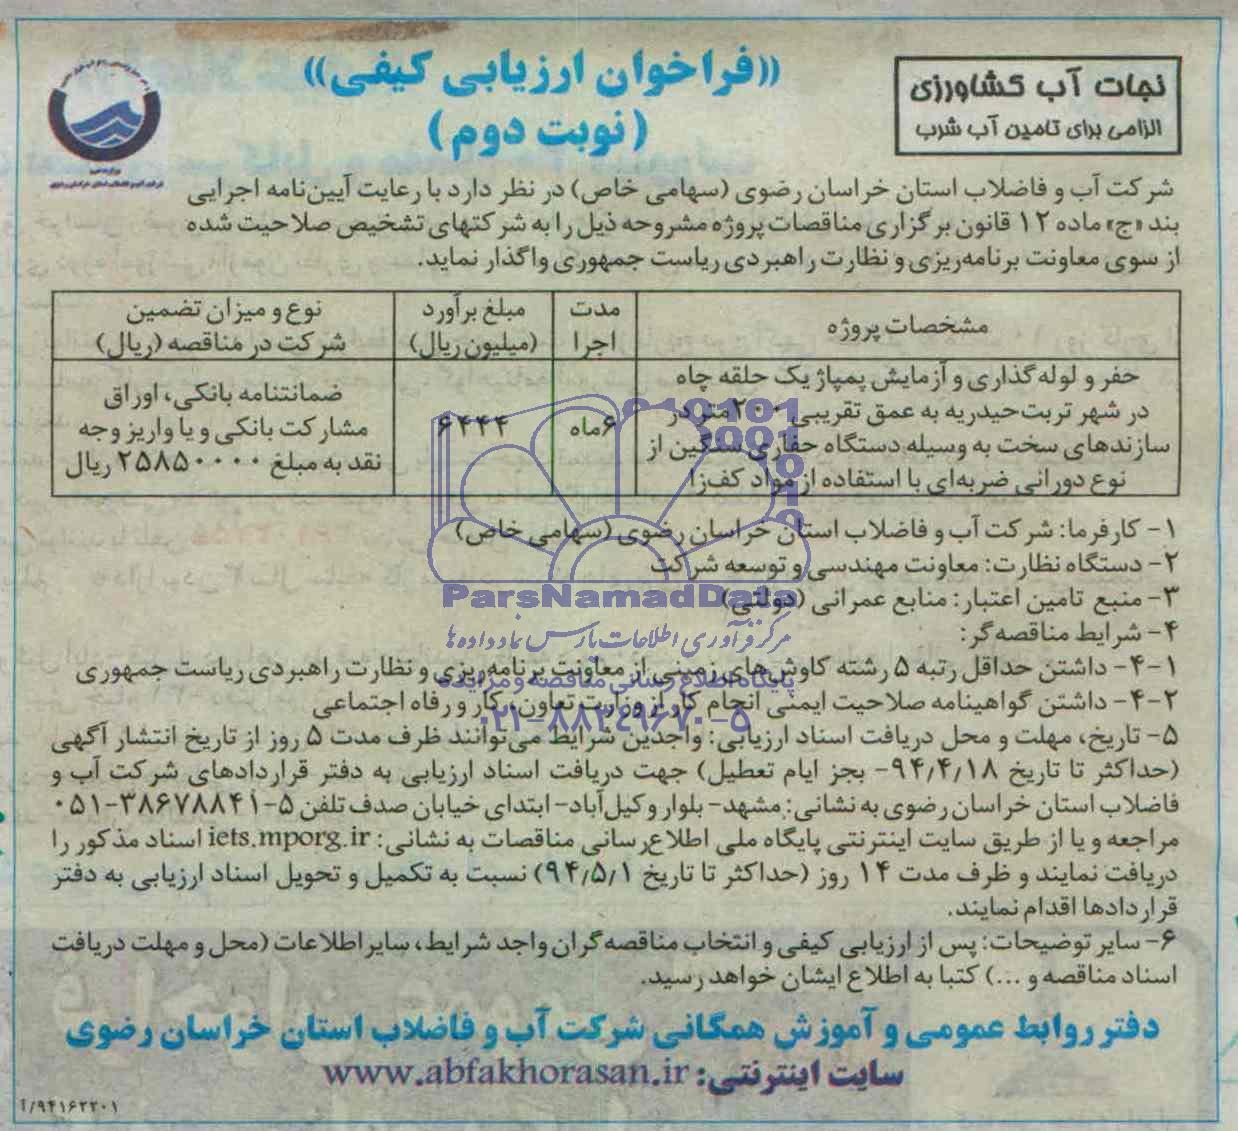 «فراخوان ارزیابی کیفی»
(نوبت دوم)
نجات آب کشاورزی
الزامی برای تامین آب شرب
شرکت آب و فاضلاب استان خراسان رضوی (سهامی خاص) در نظر دارد با رعایت آیین‌نامه اجرایی
بند «ج» ماده ۱۲ قانون برگزاری مناقصات پروژه مشروحه ذیل را به شرکتهای تشخیص صلاحیت شده
از سوی معاونت برنامه‌ریزی و نظارت راهبردی ریاست جمهوری واگذار نماید.
مشخصات پروژه
مدت
اجرا
مبلغ برآورد
(میلیون ریال)
نوع و میزان تضمین
شرکت در مناقصه (ریال)
حفر و لوله‌گذاری و آزمایش پمپاژ یک حلقه چاه
در شهر تربت‌حیدریه به عمق تقریبی ۲۰۰ متر در
سازندهای سخت به وسیله دستگاه حفاری سنگین از
نوع دورانی ضربه‌ای با استفاده از مواد کف‌زا
۶ماه
۶۴۴۴
ضمانتنامه بانکی، اوراق
مشارکت بانکی و یا واریز وجه
نقد به مبلغ ۲۵۸۵۰۰۰۰۰ ریال
۱- کارفرما: شرکت آب و فاضلاب استان خراسان رضوی (سهامی خاص)
۲- دستگاه نظارت: معاونت مهندسی و توسعه شرکت
۳- منبع تامین اعتبار: منابع عمرانی (دولتی)
ParsNamadData
مرکز فرآوری اطلاعات پارس نماد داده‌ها
۴- شرایط مناقصه‌گر:
۴-۱- داشتن حداقل رتبه ۵ رشته کاوش‌های زمینی از معاونت برنامه‌ریزی و نظارت راهبردی ریاست جمهوری
پایگاه اطلاع رسانی مناقصه و مزایده
۴-۲- داشتن گواهینامه صلاحیت ایمنی انجام کار از وزارت تعاون، کار و رفاه اجتماعی
۰۲۱-۸۸۳۴۹۶۷۰-۵
۵- تاریخ، مهلت و محل دریافت اسناد ارزیابی: واجدین شرایط می‌توانند ظرف مدت ۵ روز از تاریخ انتشار آگهی
(حداکثر تا تاریخ ۹۴/۴/۱۸- بجز ایام تعطیل) جهت دریافت اسناد ارزیابی به دفتر قراردادهای شرکت آب و
فاضلاب استان خراسان رضوی به نشانی: مشهد- بلوار وکیل‌آباد- ابتدای خیابان صدف تلفن ۵-۳۸۶۷۸۸۴۱-۰۵۱
مراجعه و یا از طریق سایت اینترنتی پایگاه ملی اطلاع‌رسانی مناقصات به نشانی: iets.mporg.ir اسناد مذکور را
دریافت نمایند و ظرف مدت ۱۴ روز (حداکثر تا تاریخ ۹۴/۵/۱) نسبت به تکمیل و تحویل اسناد ارزیابی به دفتر
قراردادها اقدام نمایند.
۶- سایر توضیحات: پس از ارزیابی کیفی و انتخاب مناقصه‌گران واجد شرایط، سایر اطلاعات (محل و مهلت دریافت
اسناد مناقصه و ...) کتبا به اطلاع ایشان خواهد رسید.
دفتر روابط عمومی و آموزش همگانی شرکت آب و فاضلاب استان خراسان رضوی
سایت اینترنتی: www.abfakhorasan.ir
۹۴۱۶۲۲۰۱/آ